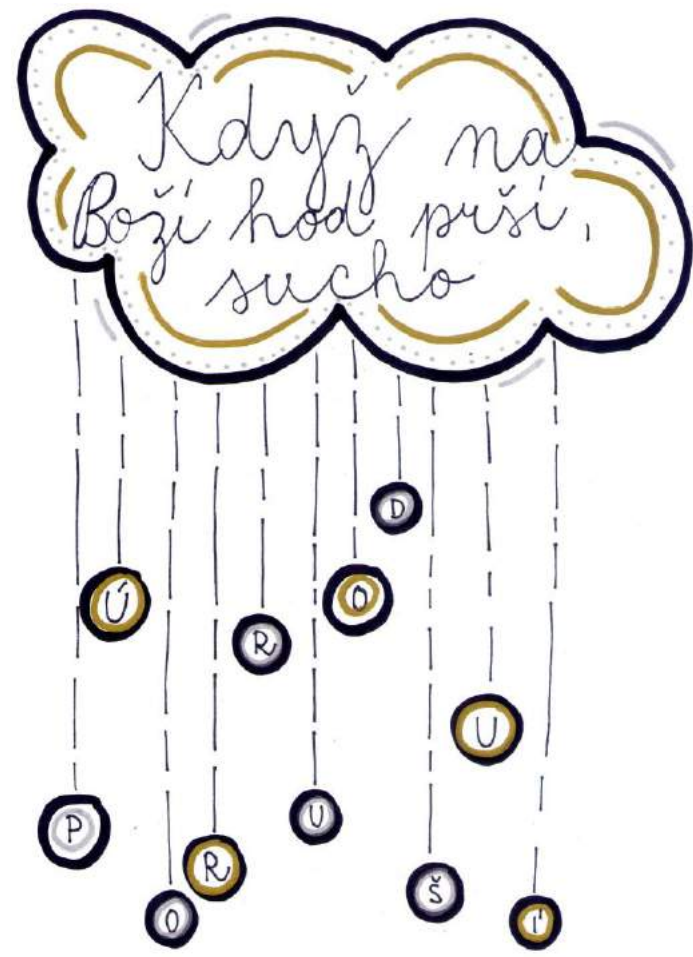 Když na
Boží hod prší,
sucho
Ú R O D U
P O R U Š Í